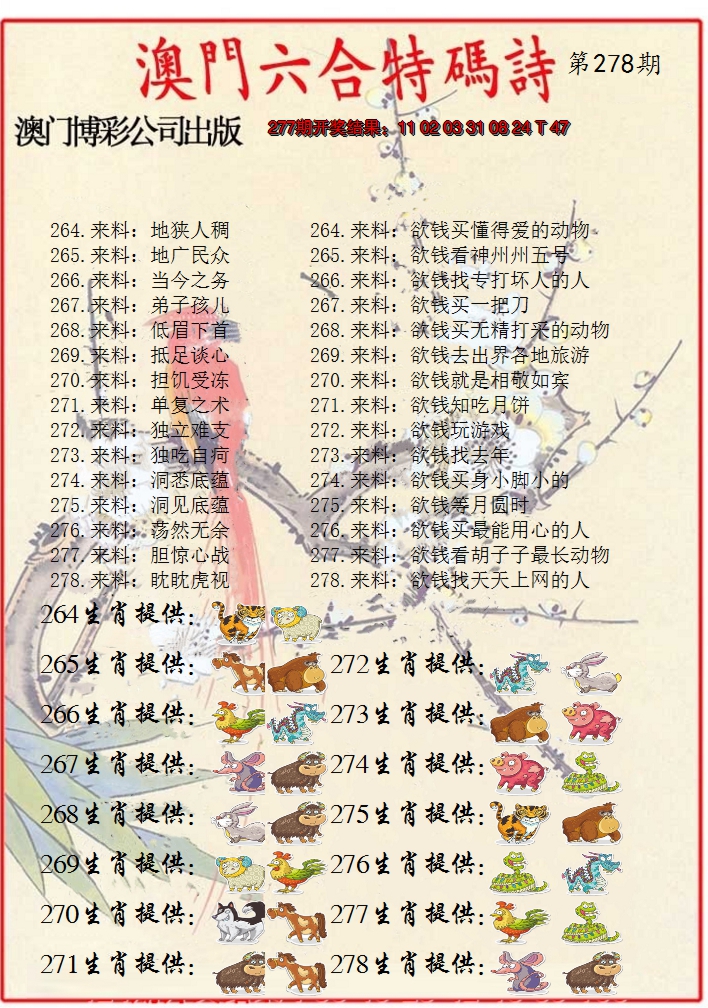 澳門六合特碼詩 第278期
澳门博彩公司出版 277期开奖结果：11 02 03 31 08 24 T 47
264.来料：地狭人稠 264.来料：欲钱买懂得爱的动物
265.来料：地广民众 265.来料：欲钱看神州州五号
266.来料：当今之务 266.来料：欲钱找专打坏人的人
267.来料：弟子孩儿 267.来料：欲钱买一把刀
268.来料：低眉下首 268.来料：欲钱买无精打采的动物
269.来料：抵足谈心 269.来料：欲钱去出界各地旅游
270.来料：担饥受冻 270.来料：欲钱就是相敬如宾
271.来料：单复之术 271.来料：欲钱知吃月饼
272.来料：独立难支 272.来料：欲钱玩游戏
273.来料：独吃自疴 273.来料：欲钱找去年
274.来料：洞悉底蕴 274.来料：欲钱买身小脚小的
275.来料：洞见底蕴 275.来料：欲钱等月圆时
276.来料：荡然无余 276.来料：欲钱买最能用心的人
277.来料：胆惊心战 277.来料：欲钱看胡子子最长动物
278.来料：眈眈虎视 278.来料：欲钱找天天上网的人
264生肖提供：
265生肖提供： 272生肖提供：
266生肖提供： 273生肖提供：
267生肖提供： 274生肖提供：
268生肖提供： 275生肖提供：
269生肖提供： 276生肖提供：
270生肖提供： 277生肖提供：
271生肖提供： 278生肖提供：